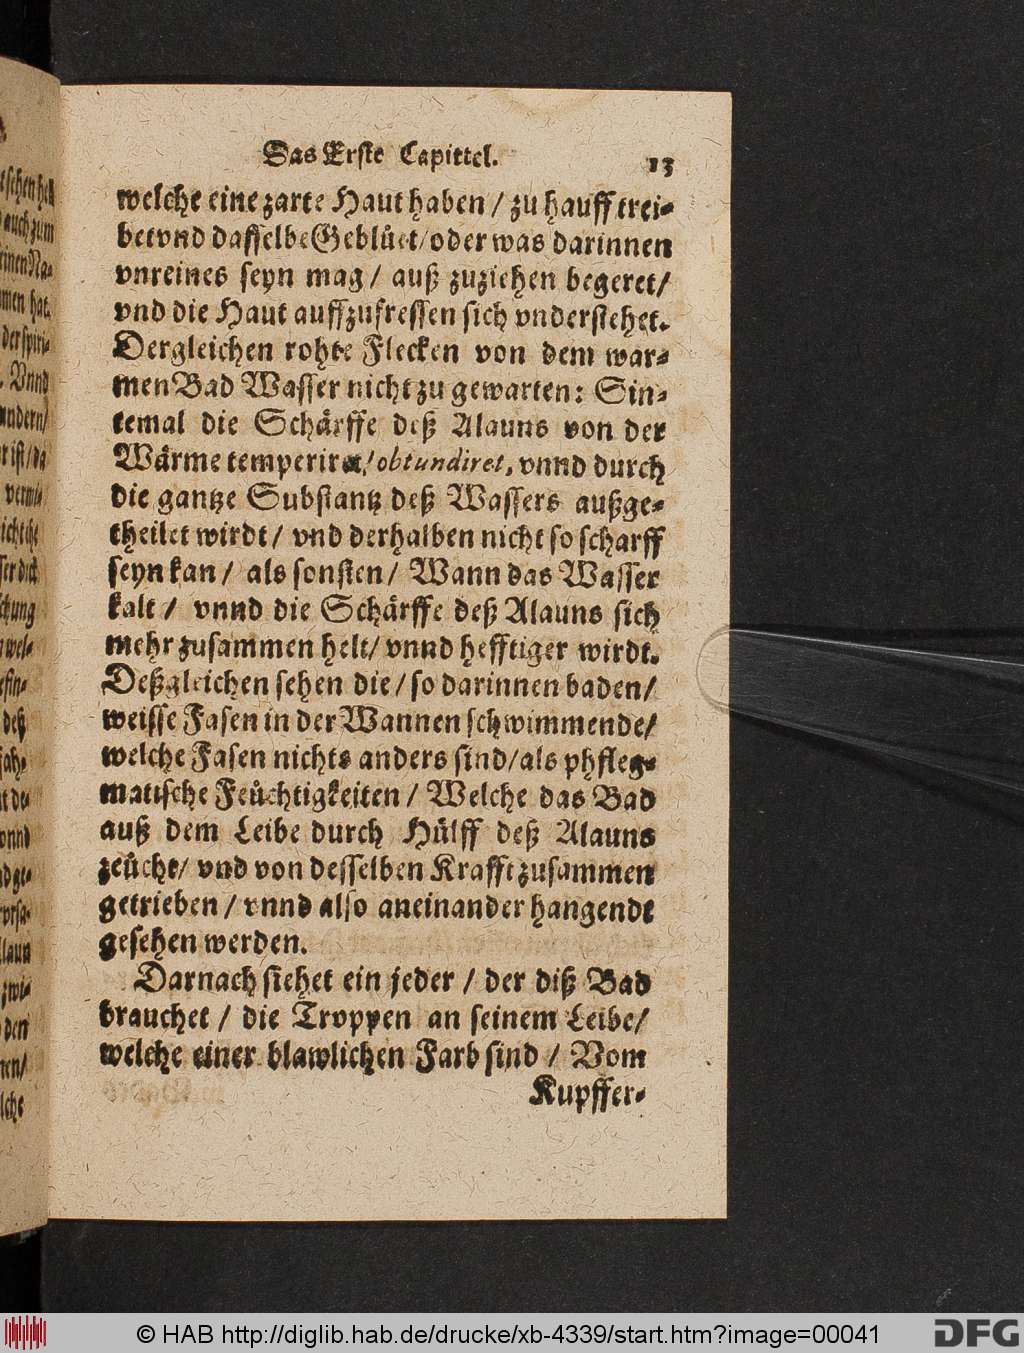 Das Erste Capittel. 13
welche eine zarte Haut haben / zu hauff trei-
bet vnd dasselbe Geblüet / oder was darinnen
vnreines seyn mag / auß zuziehen begeret /
vnd die Haut auffzufressen sich vnderstehet.
Dergleichen rohte Flecken von dem war-
men Bad Wasser nicht zu gewarten: Sin-
temal die Schärffe deß Alauns von der
Wärme temperiret / obtundiret, vnnd durch
die gantze Substantz deß Wassers außge-
theilet wirdt / vnd derhalben nicht so scharff
seyn kan / als sonsten / Wann das Wasser
kalt / vnnd die Schärffe deß Alauns sich
mehr zusammen helt / vnnd hefftiger wirdt.
Deßgleichen sehen die / so darinnen baden /
weisse Fasen in der Wannen schwimmende /
welche Fasen nichts anders sind / als phfleg-
matische Feüchtigkeiten / Welche das Bad
auß dem Leibe durch Hülff deß Alauns
zeüche / vnd von desselben Krafft zusammen
getrieben / vnnd also aneinander hangende
gesehen werden.
Darnach siehet ein jeder / der diß Bad
brauchet / die Troppen an seinem Leibe /
welche einer blawlichen Farb sind / Vom
Kupffer-
tschen
auch zum
einen Na-
men hat.
der spiri-
Vnnd
andern /
r ist / da
schung
wel-
deß
vnnd
laun
zwi-
den
lche
© HAB http://diglib.hab.de/drucke/xb-4339/start.htm?image=00041
DFG